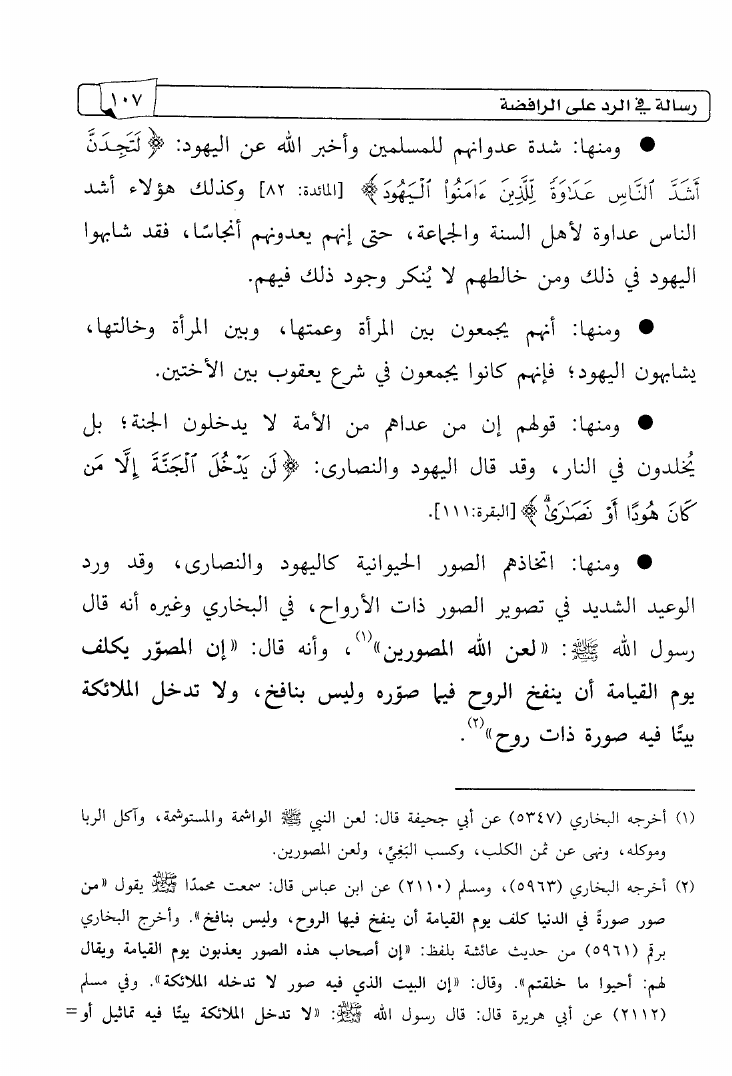 رسالة في الرد على الرافضة
١٠٧
● ومنها: شدة عدوانهم للمسلمين وأخبر الله عن اليهود: ﴿ لَتَجِدَنَّ
أَشَدَّ ٱلنَّاسِ عَدَٰوَةً لِّلَّذِينَ ءَامَنُوا۟ ٱلْيَهُودَ ﴾ [المائدة: ٨٢] وكذلك هؤلاء أشد
الناس عداوة لأهل السنة والجماعة، حتى إنهم يعدونهم أنجاسًا، فقد شابهوا
اليهود في ذلك ومن خالطهم لا يُنكر وجود ذلك فيهم.
● ومنها: أنهم يجمعون بين المرأة وعمتها، وبين المرأة وخالتها،
يشابهون اليهود؛ فإنهم كانوا يجمعون في شرع يعقوب بين الأختين.
● ومنها: قولهم إن من عداهم من الأمة لا يدخلون الجنة؛ بل
يُخلدون في النار، وقد قال اليهود والنصارى: ﴿ لَن يَدْخُلَ ٱلْجَنَّةَ إِلَّا مَن
كَانَ هُودًا أَوْ نَصَٰرَىٰ ۗ ﴾ [البقرة:١١١].
● ومنها: اتخاذهم الصور الحيوانية كاليهود والنصارى، وقد ورد
الوعيد الشديد في تصوير الصور ذات الأرواح، في البخاري وغيره أنه قال
رسول الله ﷺ: «لعن الله المصورين»(١)، وأنه قال: «إن المصوّر يكلف
يوم القيامة أن ينفخ الروح فيما صوّره وليس بنافخ، ولا تدخل الملائكة
بيتًا فيه صورة ذات روح»(٢).
(١) أخرجه البخاري (٥٣٤٧) عن أبي جحيفة قال: لعن النبي ﷺ الواشمة والمستوشمة، وآكل الربا
وموكله، ونهى عن ثمن الكلب، وكسب البَغِيِّ، ولعن المصورين.
(٢) أخرجه البخاري (٥٩٦٣)، ومسلم (٢١١٠) عن ابن عباس قال: سمعت محمدًا ﷺ يقول «من
صور صورةً في الدنيا كلف يوم القيامة أن ينفخ فيها الروح، وليس بنافخ». وأخرج البخاري
برقم (٥٩٦١) من حديث عائشة بلفظ: «إن أصحاب هذه الصور يعذبون يوم القيامة ويقال
لهم: أحيوا ما خلقتم». وقال: «إن البيت الذي فيه صور لا تدخله الملائكة». وفي مسلم
(٢١١٢) عن أبي هريرة قال: قال رسول الله ﷺ: «لا تدخل الملائكة بيتًا فيه تماثيل أو =